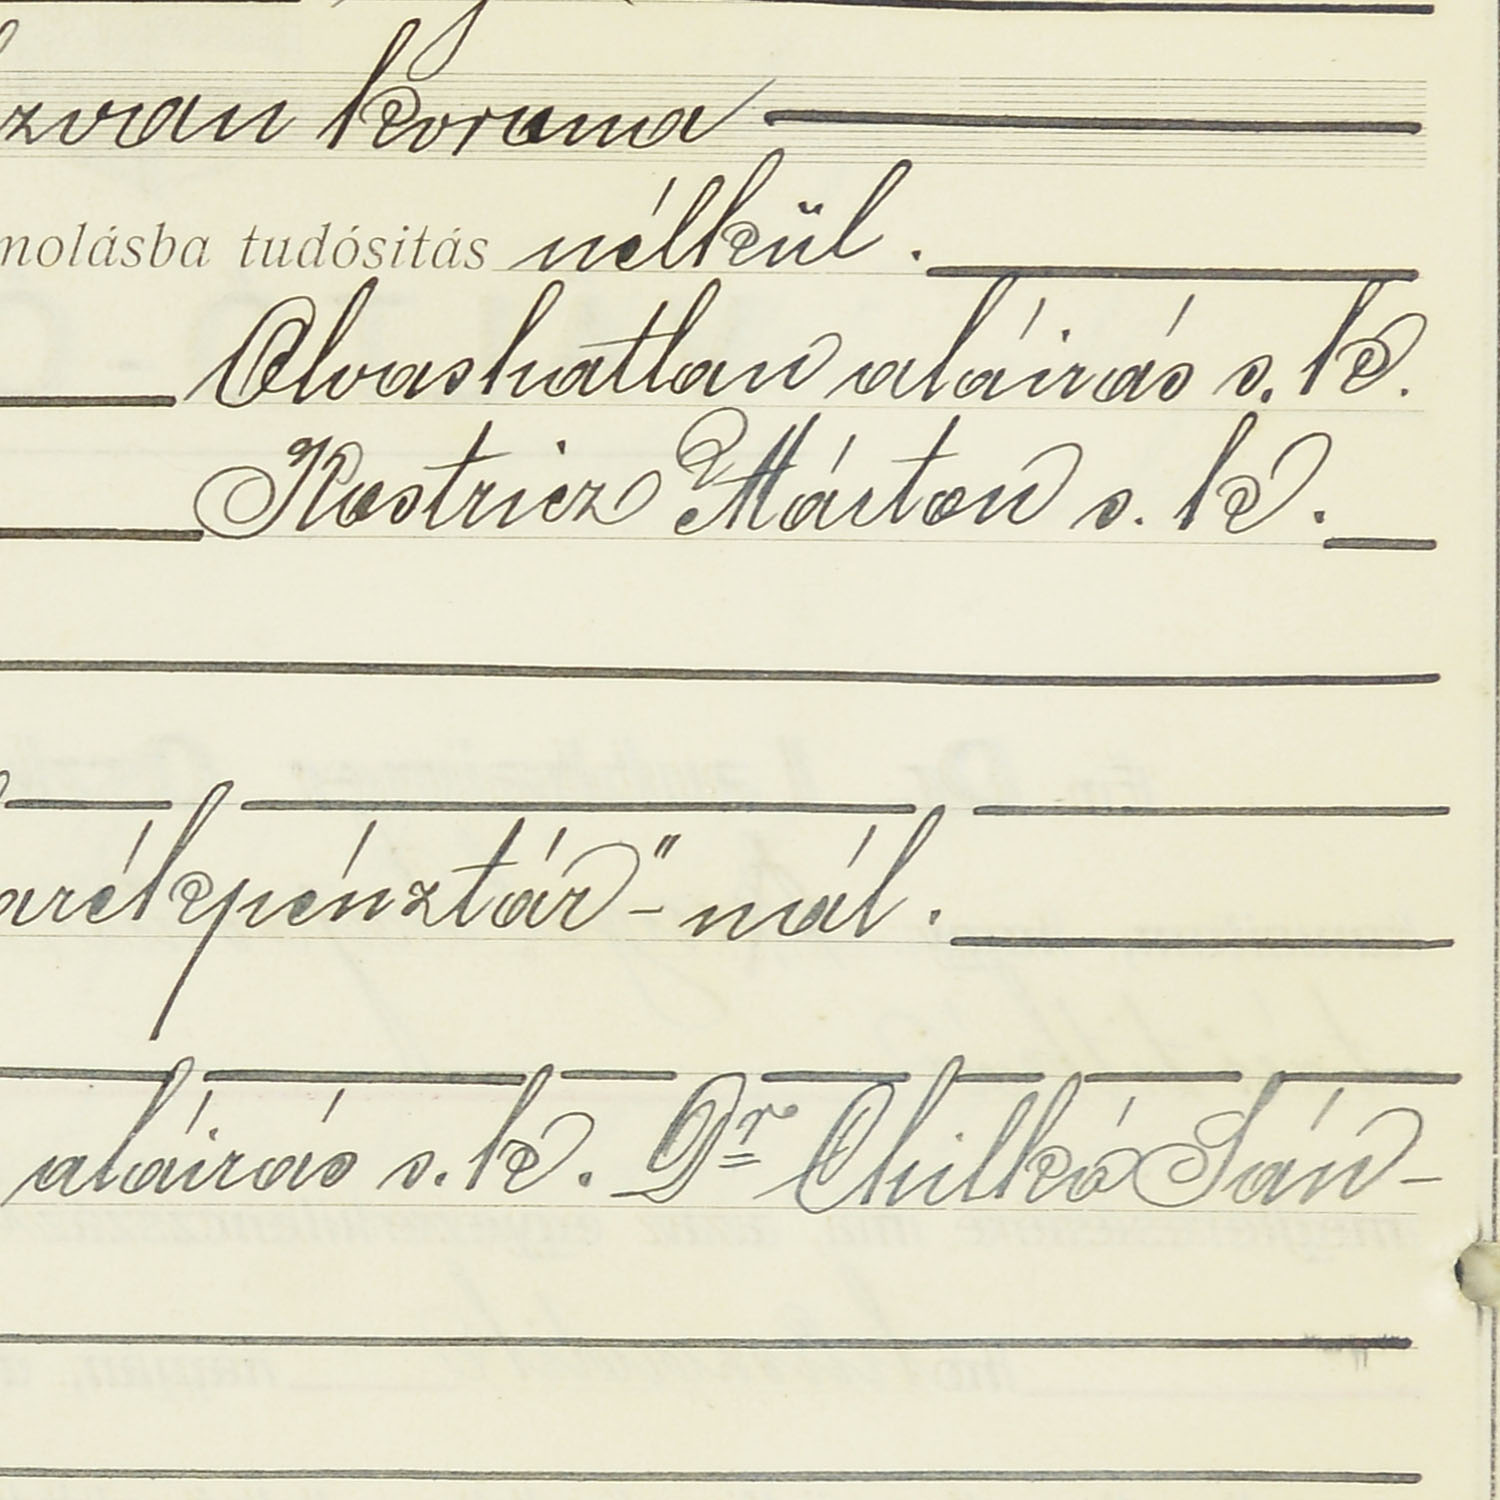 zvan korona
molásba tudósitás nélkül.
Olvashatlan aláirás s. k.
Kostricz Márton s. k.
arékpénztár"-nál.
aláirás s. k. Dr Chilkó Sán-